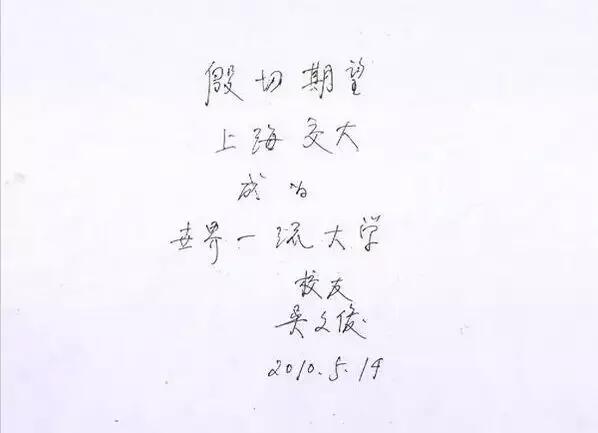 殷切期望
上海交大
成为
世界一流大学
校友
吴文俊
2010.5.19